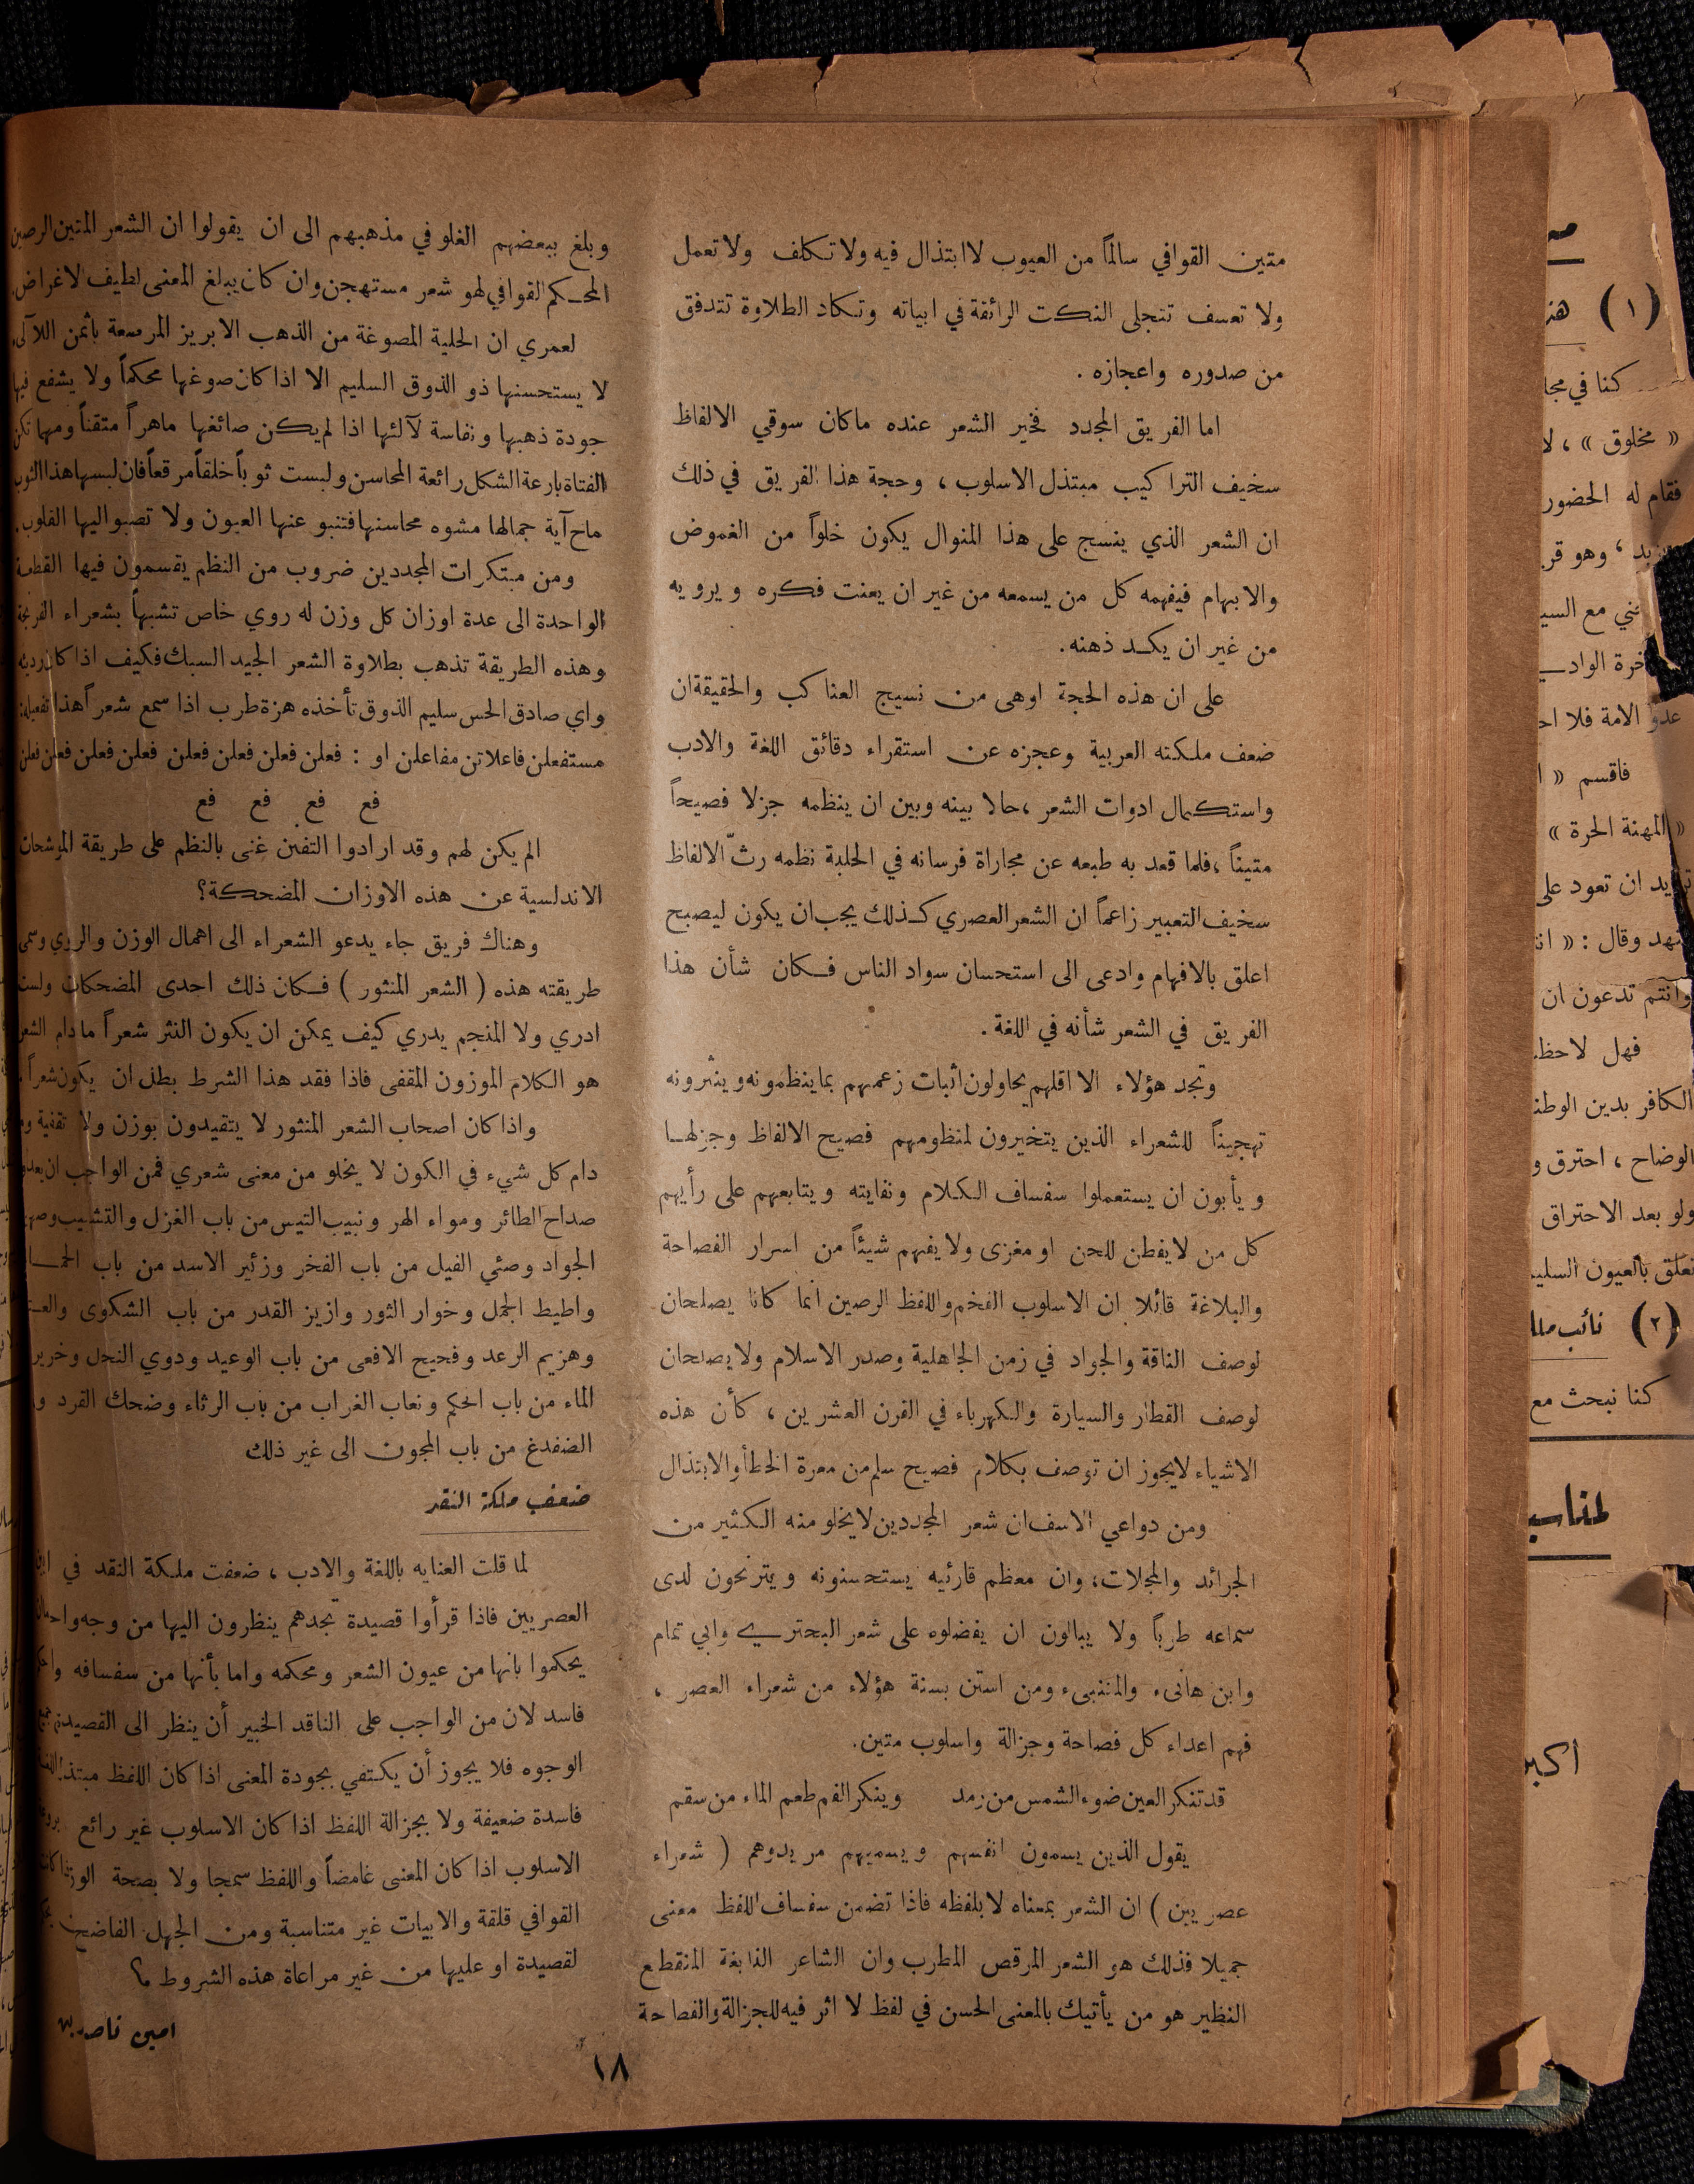 متين القوافي سالماً من العيوب لا ابتذال فيه ولا تكلف ولا تعمل
ولا تعسف تتجلى النكت الرائقة في ابياته وتكاد الطلاوة تتدفق
من صدوره واعجازه .
اما الفريق المجدد فخير الشعر عنده ماكان سوقي الالفاظ
سخيف التراكيب مبتذل الاسلوب ، وحجة هذا الفريق في ذلك
ان الشعر الذي ينسج على هذا المنوال يكون خلواً من الغموض
والابهام فيفهمه كل من يسمعه من غير ان يعنت فكره ويرويه
من غير ان يكد ذهنه .
على ان هذه الحجة اوهى من نسيج العناكب والحقيقة ان
ضعف ملكته العربية وعجزه عن استقراء دقائق اللغة والادب
واستكمال ادوات الشعر ، حالا بينه وبين ان ينظمه جزلا فصيحاً
متيناً ، فلما قعد به طبعه عن مجاراة فرسانه في الحلبة نظمه رثّ الالفاظ
سخيف التعبير زاعماً ان الشعر العصري كذلك يجب ان يكون ليصبح
اعلق بالافهام وادعى الى استحسان سواد الناس فكان شأن هذا
الفريق في الشعر شأنه في اللغة .
وتجد هؤلاء الا اقلهم يحاولون اثبات زعمهم بما ينظمونه وينثرونه
تهجيناً للشعراء الذين يتخيرون لمنظومهم فصيح الالفاظ وجزلها
ويأبون ان يستعملوا سفساف الكلام ونفايته ويتابعهم على رأيهم
كل من لا يفطن للحن او مغزى ولا يفهم شيئاً من اسرار الفصاحة
والبلاغة قائلا ان الاسلوب الفخم واللفظ الرصين انما كانا يصلحان
لوصف الناقة والجواد في زمن الجاهلية وصدر الاسلام ولا يصلحان
لوصف القطار والسيارة والكهرباء في القرن العشرين ، كأن هذه
الاشياء لا يجوز ان توصف بكلام فصيح سلم من معرة الخطأ والابتذال
ومن دواعي الاسف ان شعر المجددين لا يخلو منه الكثير من
الجرائد والمجلات ، وان معظم قارئيه يستحسنونه ويترنحون لدى
سماعه طرباً ولا يبالون ان يفضلوه على شعر البحتري وابي تمام
وابن هانىء والمتنبىء ومن استن بسنة هؤلاء من شعراء العصر ،
فهم اعداء كل فصاحة وجزالة واسلوب متين .
قد تنكر العين ضوء الشمس من رمد وينكر الفم طعم الماء من سقم
يقول الذين يسمون انفسهم ويسميهم مريدوهم ( شعراء
عصريين ) ان الشعر بمعناه لا بلفظه فاذا تضمن سفساف اللفظ معنى
جميلا فذلك هو الشعر المرقص المطرب وان الشاعر النابغة المنقطع
النظير هو من يأتيك بالمعنى الحسن في لفظ لا اثر فيه للجزالة والفصاحة
وبلغ ببعضهم الغلو في مذهبهم الى ان يقولوا ان الشعر المتين الرصين
المحكم القوافي لهو شعر مستهجن وان كان يبلغ المعنى لطيف الاغراض .
لعمري ان الحلية المصوغة من الذهب الابريز المرصعة باثمن اللآلىء
لا يستحسنها ذو الذوق السليم الا اذا كان صوغها محكماً ولا يشفع فيها
جودة ذهبها ونفاسة لآلئها اذا لم يكن صائغها ماهراً متقناً ومهما تكن
الفتاة بارعة الشكل رائعة المحاسن ولبست ثوباً خلقاً مرقعاً فان لبسها هذا الثوب
ماح آية جمالها مشوه محاسنها فتنبو عنها العيون ولا تصبو اليها القلوب .
ومن مبتكرات المجددين ضروب من النظم يقسمون فيها القطعة
الواحدة الى عدة اوزان كل وزن له روي خاص تشبهاً بشعراء الفرنجة
وهذه الطريقة تذهب بطلاوة الشعر الجيد السبك فكيف اذا كان رديئه
واي صادق الحس سليم الذوق تأخذه هزة طرب اذا سمع شعراً هذا تفعيله :
مستفعلن فاعلاتن مفاعلن او : فعلن فعلن فعلن فعلن فعلن فعلن فعلن فعلن
فع فع فع فع
الم يكن لهم وقد ارادوا التفنن غنى بالنظم على طريقة الموشحات
الاندلسية عن هذه الاوزان المضحكة ؟
وهناك فريق جاء يدعو الشعراء الى اهمال الوزن والروي وسمى
طريقته هذه ( الشعر المنثور ) فكان ذلك احدى المضحكات ولست
ادري ولا المنجم يدري كيف يمكن ان يكون النثر شعراً ما دام الشعر
هو الكلام الموزون المقفى فاذا فقد هذا الشرط بطل ان يكون شعراً .
واذا كان اصحاب الشعر المنثور لا يتقيدون بوزن ولا تقفية
دام كل شيء في الكون لا يخلو من معنى شعري فمن الواجب ان
صداح الطائر ومواء الهر ونبيب التيس من باب الغزل والتشبيب
الجواد وصئي الفيل من باب الفخر وزئير الاسد من باب
واطيط الجمل وخوار الثور وازيز القدر من باب الشكوى
وهزيم الرعد وفحيح الافعى من باب الوعيد ودوي النحل وخرير
الماء من باب الحكم ونعاب الغراب من باب الرثاء وضحك القرد
الضفدغ من باب المجون الى غير ذلك
ضعف ملكة النقد
لما قلت العنايه باللغة والادب ، ضعفت ملكة النقد في
العصريين فاذا قرأوا قصيدة تجدهم ينظرون اليها من وجه
يحكموا بانها من عيون الشعر ومحكمه واما بأنها من سفسافه
فاسد لان من الواجب على الناقد الخبير أن ينظر الى القصيدة
الوجوه فلا يجوز أن يكتفي بجودة المعنى اذا كان اللفظ مبتذلا
فاسدة ضعيفة ولا بجزالة اللفظ اذا كان الاسلوب غير رائع
الاسلوب اذا كان المعنى غامضاً واللفظ سمجا ولا بصحة
القوافي قلقة والابيات غير متناسبة ومن الجهل الفاضح
لقصيدة او عليها من غير مراعاة هذه الشروط
امين ناصر
١٨
(١)
كنا في
« مخلوق » ، لا
فقام له الحضور
، وهو
مع
الامة فلا
فاقسم «
« المهنة الحرة »
ان تعود على
وقال : «
وانتم تدعون ان
فهل
الكافر بدين
الوضاح ، احترق
ولو بعد الاحتراق
بالعيون
(٢) نائب
كنا نبحث مع